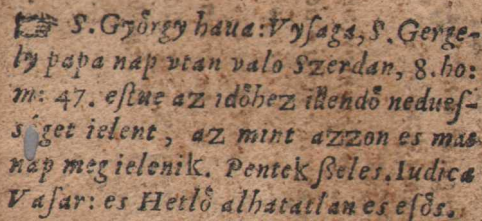 ☞ S. Győrgy haua: Vyſaga, S. Gerge-
ly papa nap vtan valo Szerdan, 8. ho:
m: 47. eſtue az időhez illendő neduеſ-
séget ielent, az mint azzon es mas
nap meg ielenik. Pentek ſzeles. Iudica
Vaſar: es Hetlő alhatatlan es eſős.